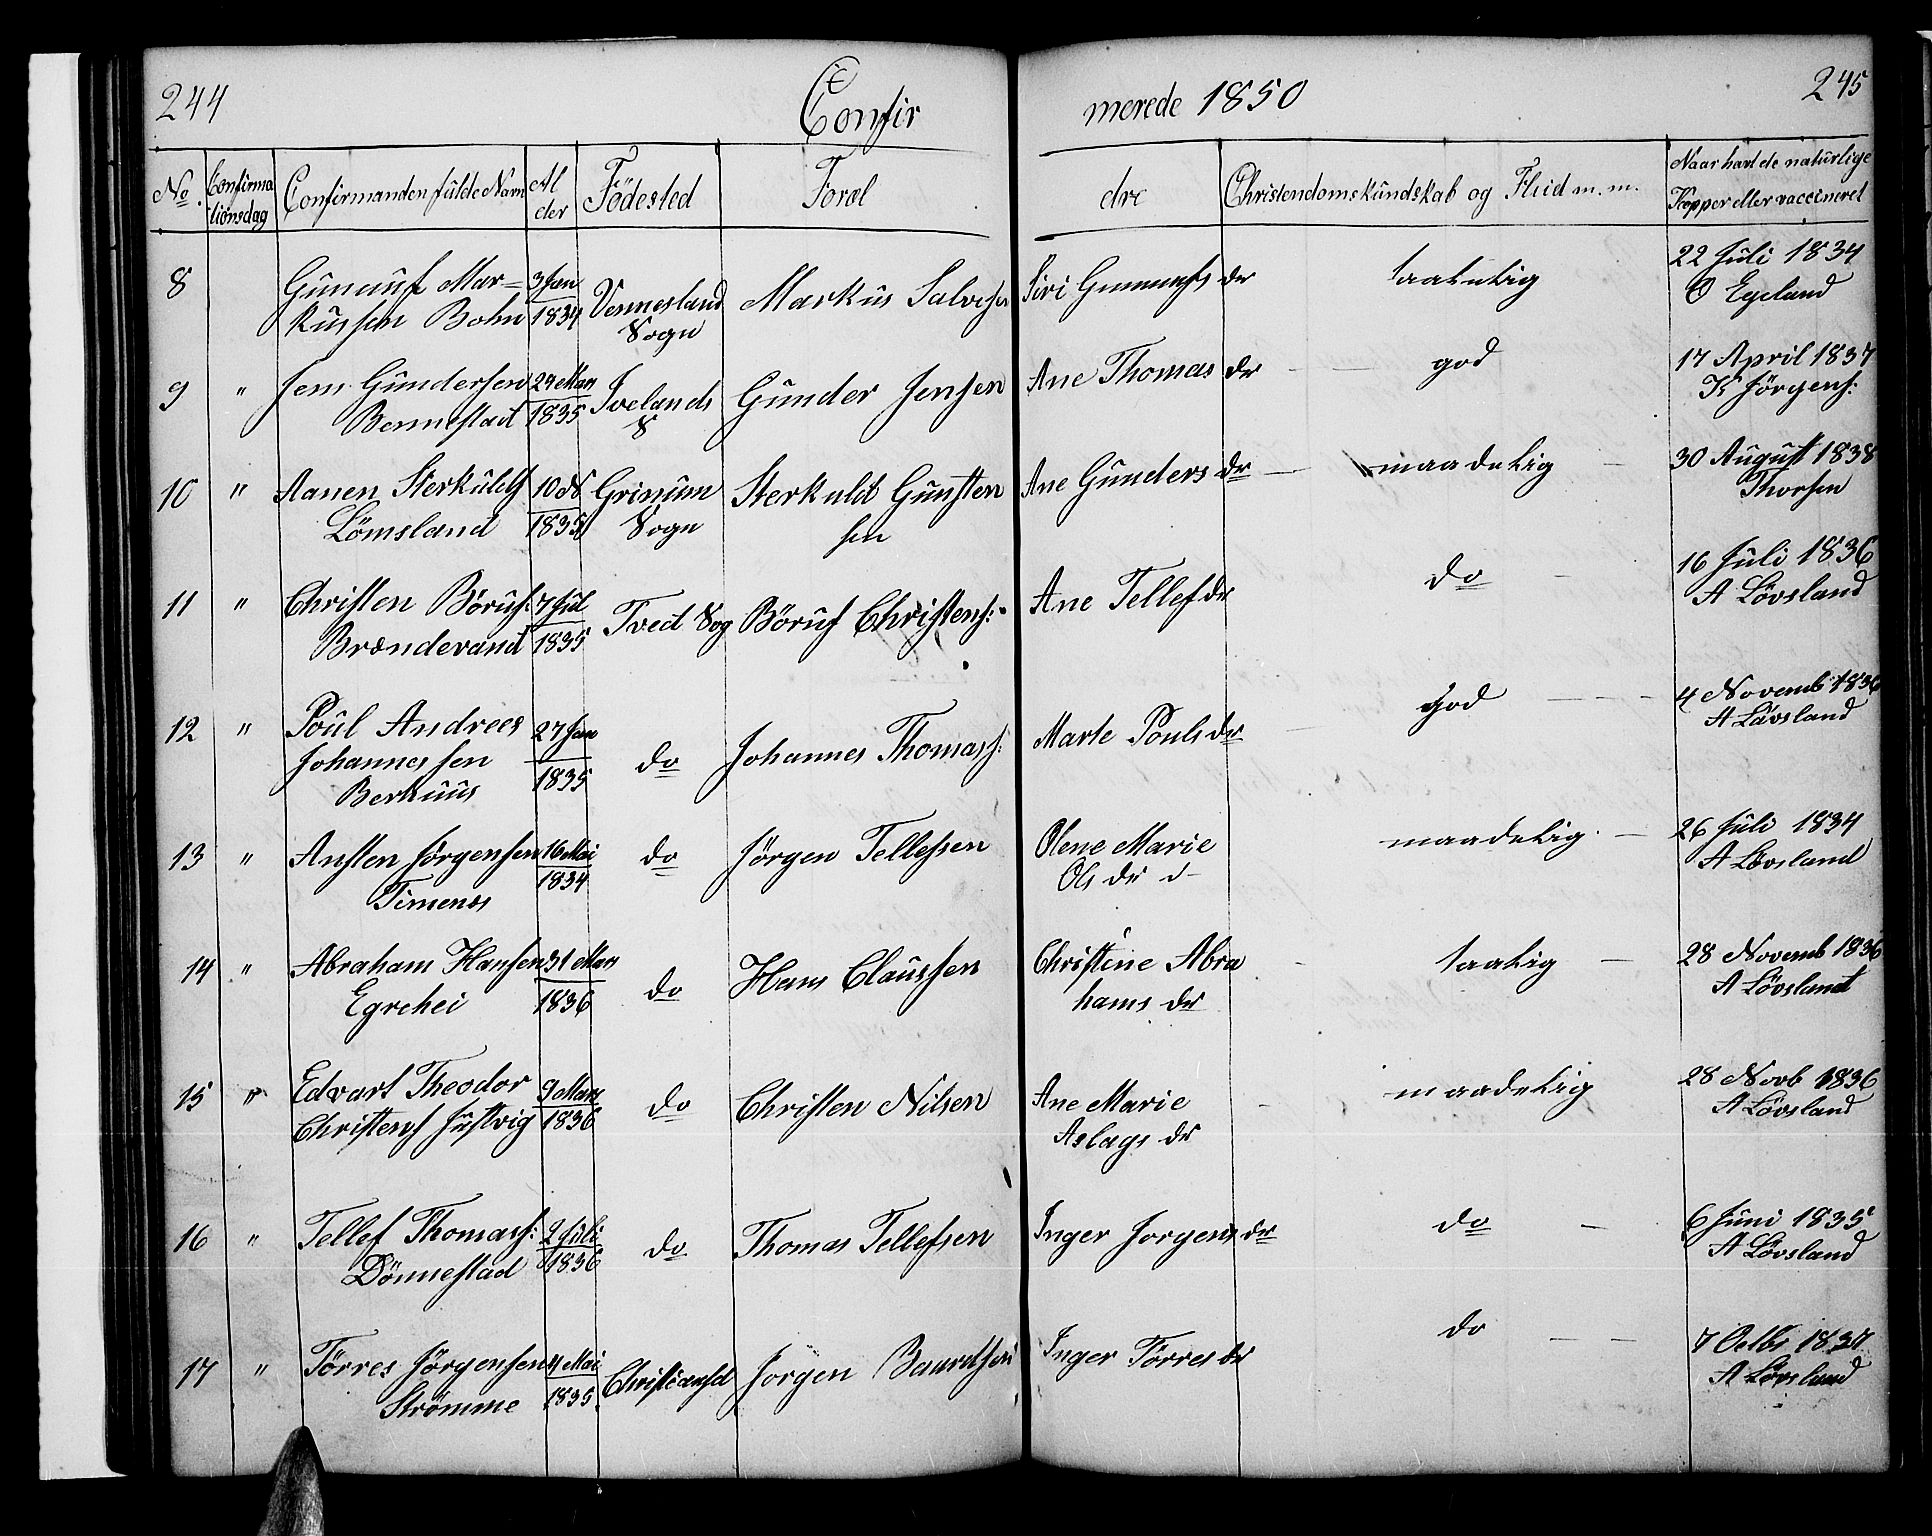 244
Confir
merede 1850
245
No. Confirmationsdag Confirmandens fulde Navn Alder Födested Foræl
dre Christendomskundskab og Flid m. m. Naar havt de naturlige Kopper eller vaccineret
8 Gunnuf Mar= 3 Jan Vennesland Markus Salvesen Siri Gunnufs dr taalelig 22 Juli 1834
kussen Bohn 1834 Sogn O Egeland
9 " Jens Gundersen 29 Mars Ivelands Gunder Jensen Ane Thomas dr god 17 April 1837
Bennestad 1835 S K Jörgens:
10 " Aanen Sterkulds 10 N Grinum Sterkuld Gunsten Ane Gunders dr maadelig 30 August 1838
Lömsland 1835 Sogn sen Thorsen
11 " Christen Börufs: 7 Jul Tved Sog Böruf Christens: Ane Tellef dr do 16 Juli 1836
Brændevand 1835 A Lövsland
12 " Poul Andreas 27 Jan do Johannes Thomass: Marte Pouls dr god 4 Novemb 1836
Johannessen 1835 A Lövsland
Berhuus
13 " Ansten Jörgensen 16 Mai do Jörgen Tellefsen Olene Marie maadelig 26 Juli 1834
Timenes 1834 Ols dr A Lövsland
14 " Abraham Hansen 31 Mars do Hans Claussen Christine Abra taalig 28 Novemb 1836
Egrehei 1836 hams dr A Lövsland
15 " Edvart Theodor 9 Mars do Christen Nilsen Ane Marie maadelig 28 Novb 1836
Christens Justvig 1836 Aslags dr A Lövsland
16 " Tellef Thomass: 2 Juli do Thomas Tellefsen Inger Jorgens dr do 6 Juni 1835
Dönnestad 1836 A Lövsland
17 " Törres Jörgensen 4 Mai Christiansd Jorgen Baardsen Inger Törres dr do 7 Octbr 1837
Strömme 1835 A Lövsland